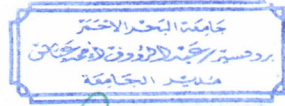 جامعة البحر الأحمر
بروفسير/عبد الرؤوف
مدير الجامعة